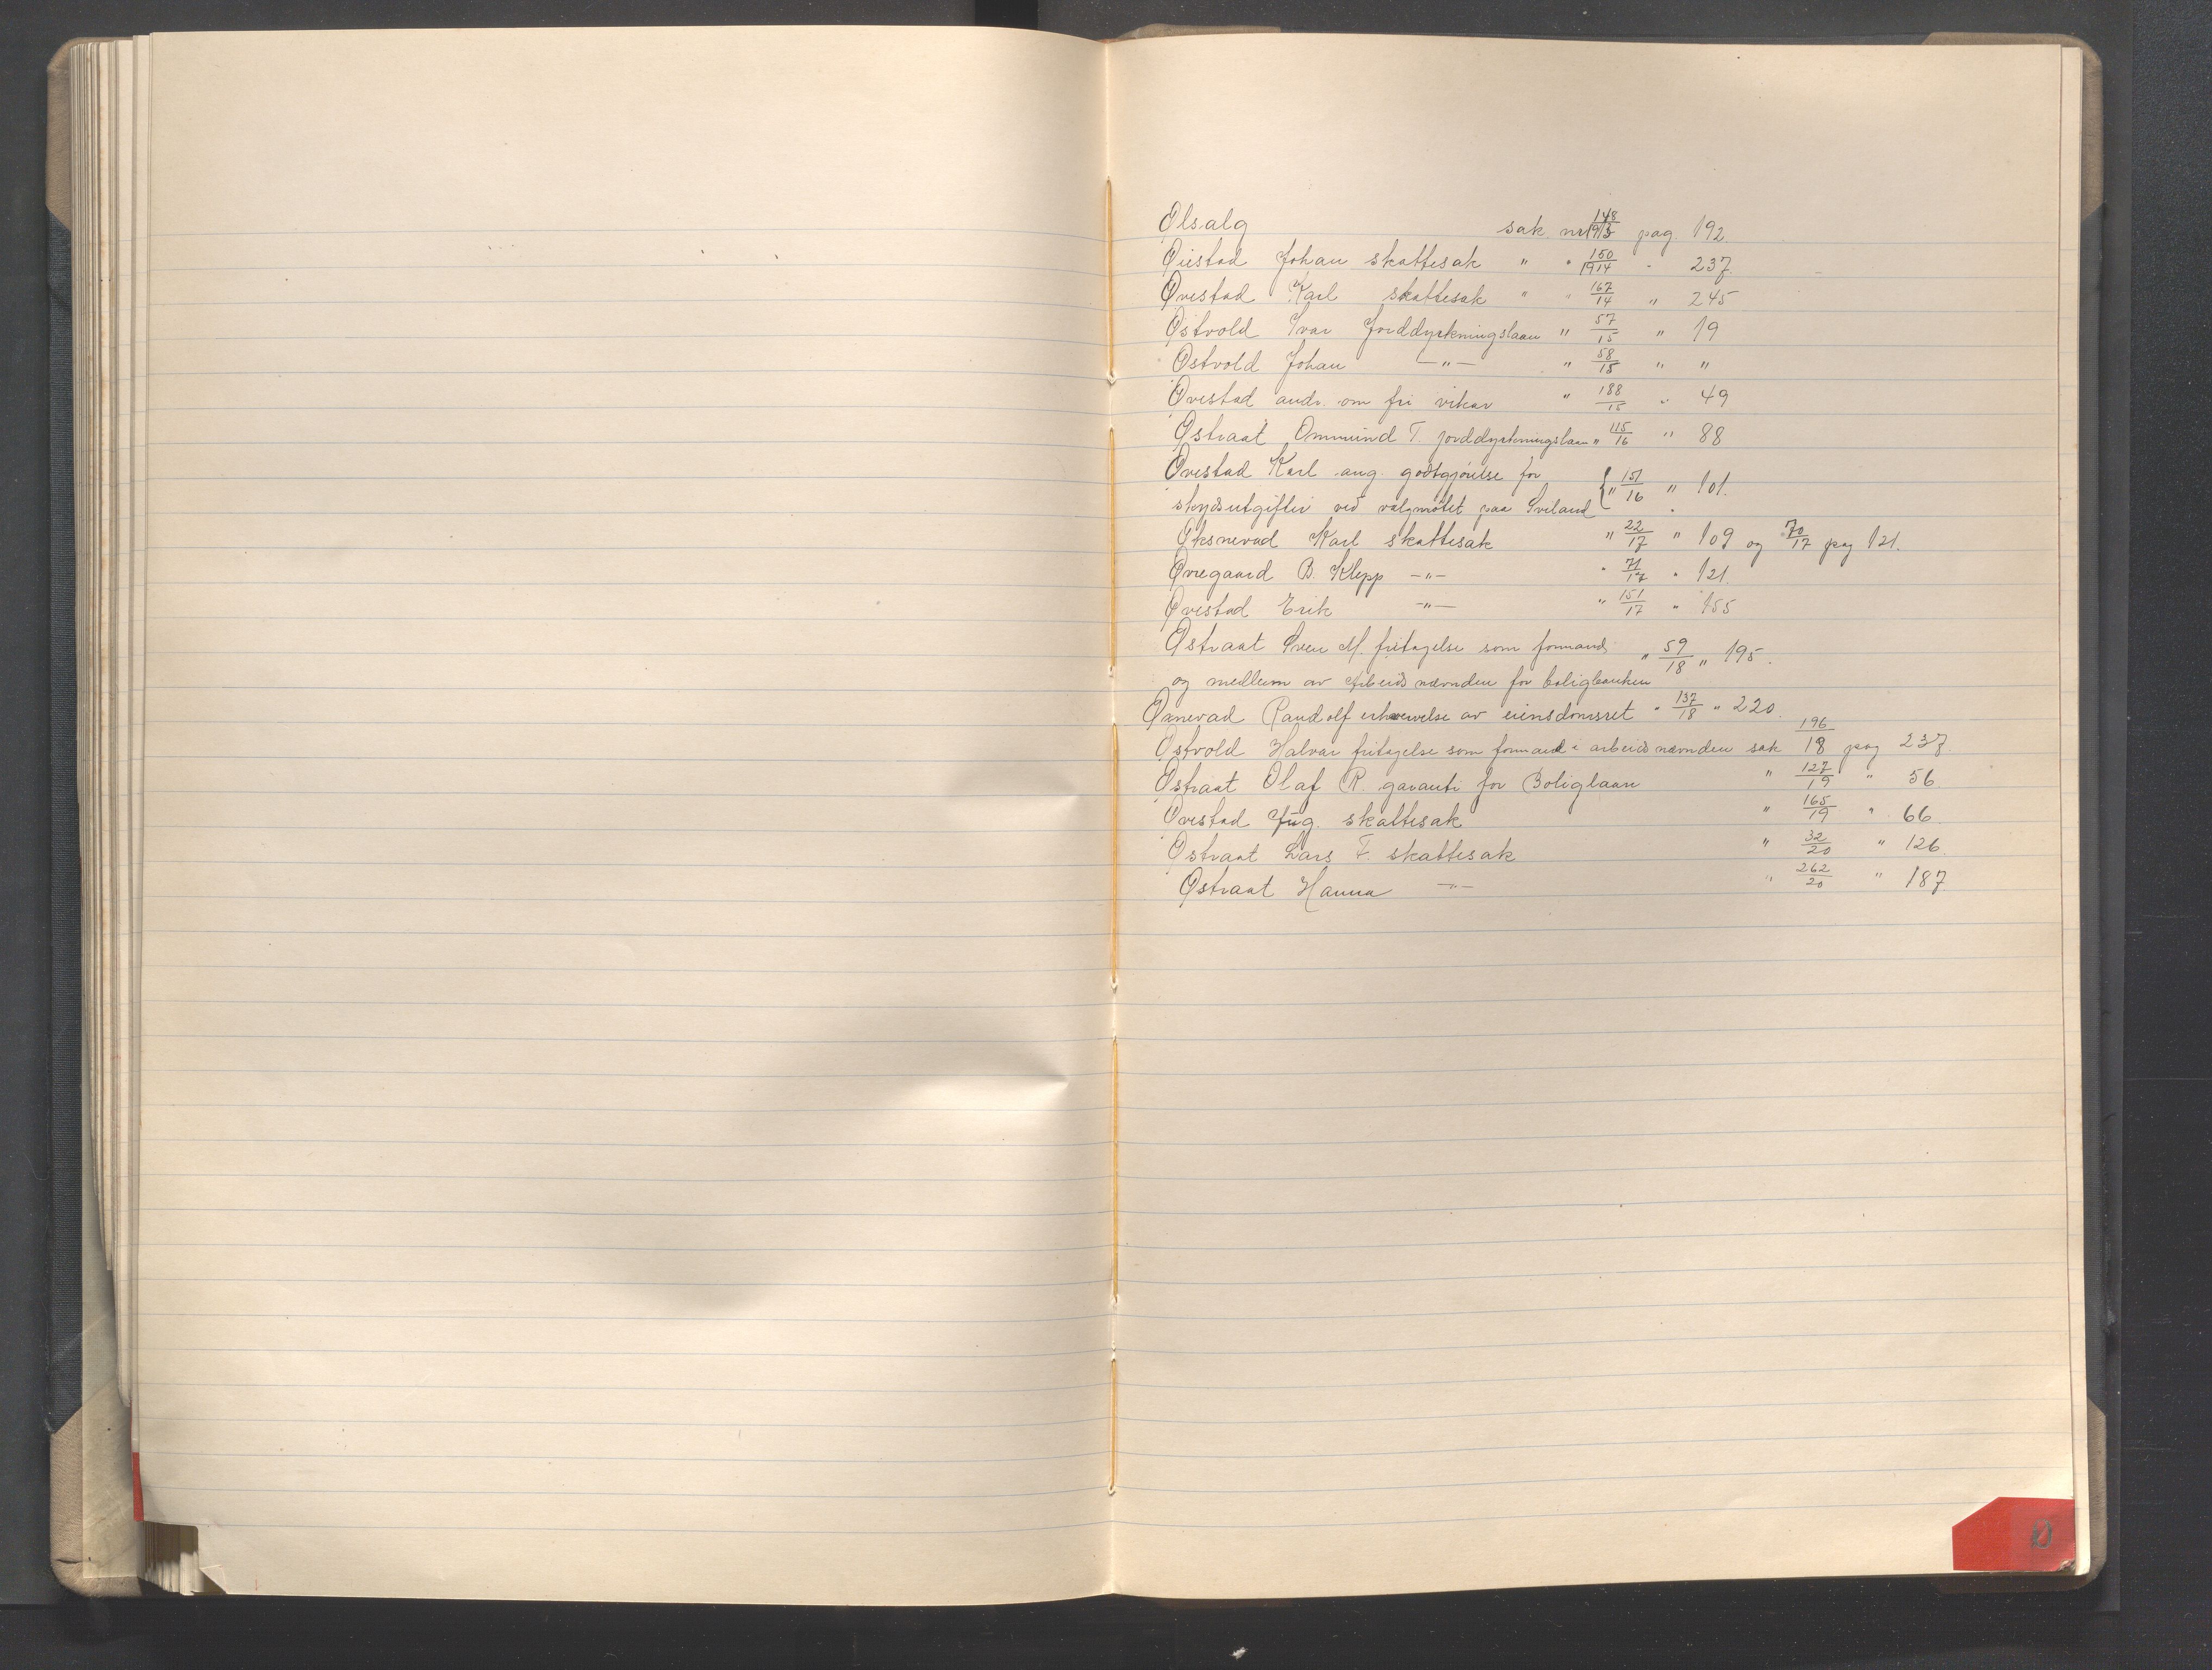 Ølsalg sak. nr 148/1913 pag. 192.
Øvestad Johan skattesak " " 150/1914 " 237
Øvestad Karl skattesak " " 167/14 " 245
Østvold Ivar Jorddyrkningslaan " 57/15 " 19
Østvold Johan —"— " 58/15 " "
Øvestad andr. om fri vikar " 188/15 " 49
Østraat Ommund T. jorddyrkningslaan " 115/16 " 88
Øvestad Karl ang. godtgjørelse for
skydsutgifter ved valgmøtet paa Sviland { " 151/16 " 101.
Øksnevad Karl skattesak " 22/17 " 109 og 70/17 pag 121.
Øvregaard B. Klepp —"— " 71/17 " 121.
Øvestad Erik —"— " 151/17 " 155
Østraat Sven M. fritagelse som formand " 59/18 " 195.
og medlem av Arbeidsnævnden for boligbanken
Øxnevad Randolf erhvervelse av eiendomsret " 137/18 " 220.
Østvold Halvar fritagelse som formand i arbeidsnævnden sak 196/18 pag 237.
Østraat Olaf R. garanti for Boliglaan " 127/19 " 56.
Øvestad Ing. skattesak " 165/19 " 66.
Østraat Lars T. skattesak " 32/20 " 126.
Østraat Hanna —"— " 262/20 " 187
Ø